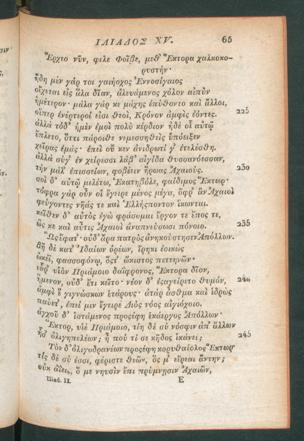 ΙΛΙΑΔΟΣ XV. 65
Ἔρχεο νῦν, φίλε Φοῖβε, μεθ' Ἕκτορα χαλκοκο-
ρυστήν·
ἤδη μὲν γάρ τοι γαιήοχος Ἐννοσίγαιος
οἴχεται εἰς ἅλα δῖαν, ἀλευάμενος χόλον αἰπὺν
ἡμέτερον· μάλα γάρ κε μάχης ἐπύθοντο καὶ ἄλλοι,
οἵπερ ἐνέρτεροί εἰσι θεοὶ, Κρόνον ἀμφὶς ἐόντες. 225
ἀλλὰ τόδ' ἠμὲν ἐμοὶ πολὺ κέρδιον ἠδέ οἱ αὐτῷ
ἔπλετο, ὅττι πάροιθε νεμεσσηθεὶς ὑπόειξεν
χεῖρας ἐμάς· ἐπεὶ οὔ κεν ἀνιδρωτί γ' ἐτελέσθη.
ἀλλὰ σύγ' ἐν χείρεσσι λάβ' αἰγίδα θυσσανόεσσαν,
τὴν μάλ' ἐπισσείων, φοβέειν ἥρωας Ἀχαιούς. 230
σοὶ δ' αὐτῷ μελέτω, Ἑκατηβόλε, φαίδιμος Ἕκτωρ·
τόφρα γὰρ οὖν οἱ ἔγειρε μένος μέγα, ὄφρ' ἂν Ἀχαιοὶ
φεύγοντες νῆάς τε καὶ Ἑλλήσποντον ἵκωνται.
κεῖθεν δ' αὐτὸς ἐγὼ φράσομαι ἔργον τε ἔπος τε,
ὥς κε καὶ αὖτις Ἀχαιοὶ ἀναπνεύσωσι πόνοιο. 235
Ὣς ἔφατ'· οὐδ' ἄρα πατρὸς ἀνηκούστησεν Ἀπόλλων.
βῆ δὲ κατ' Ἰδαίων ὀρέων, ἴρηκι ἐοικὼς
ὠκέϊ, φασσοφόνῳ, ὅςτ' ὤκιστος πετεηνῶν·
εὗρ' υἱὸν Πριάμοιο δαΐφρονος, Ἕκτορα δῖον,
ἥμενον, οὐδ' ἔτι κεῖτο· νέον δ' ἐσαγείρετο θυμὸν, 240
ἀμφὶ ἓ γιγνώσκων ἑταίρους· ἀτὰρ ἆσθμα καὶ ἱδρὼς
παύετ', ἐπεί μιν ἔγειρε Διὸς νόος αἰγιόχοιο.
ἀγχοῦ δ' ἱστάμενος προσέφη ἑκάεργος Ἀπόλλων·
Ἕκτορ, υἱὲ Πριάμοιο, τίη δὲ σὺ νόσφιν ἀπ' ἄλλων
ἧσ' ὀλιγηπελέων; ἦ πού τί σε κῆδος ἱκάνει; 245
Τὸν δ' ὀλιγοδρανέων προσέφη κορυθαίολος Ἕκτωρ·
τίς δὲ σύ ἐσσι, φέριστε θεῶν, ὅς μ' εἴρεαι ἄντην;
οὐκ ἀΐεις, ὅ με νηυσὶν ἔπι πρύμνῃσιν Ἀχαιῶν,
Iliad. II. E